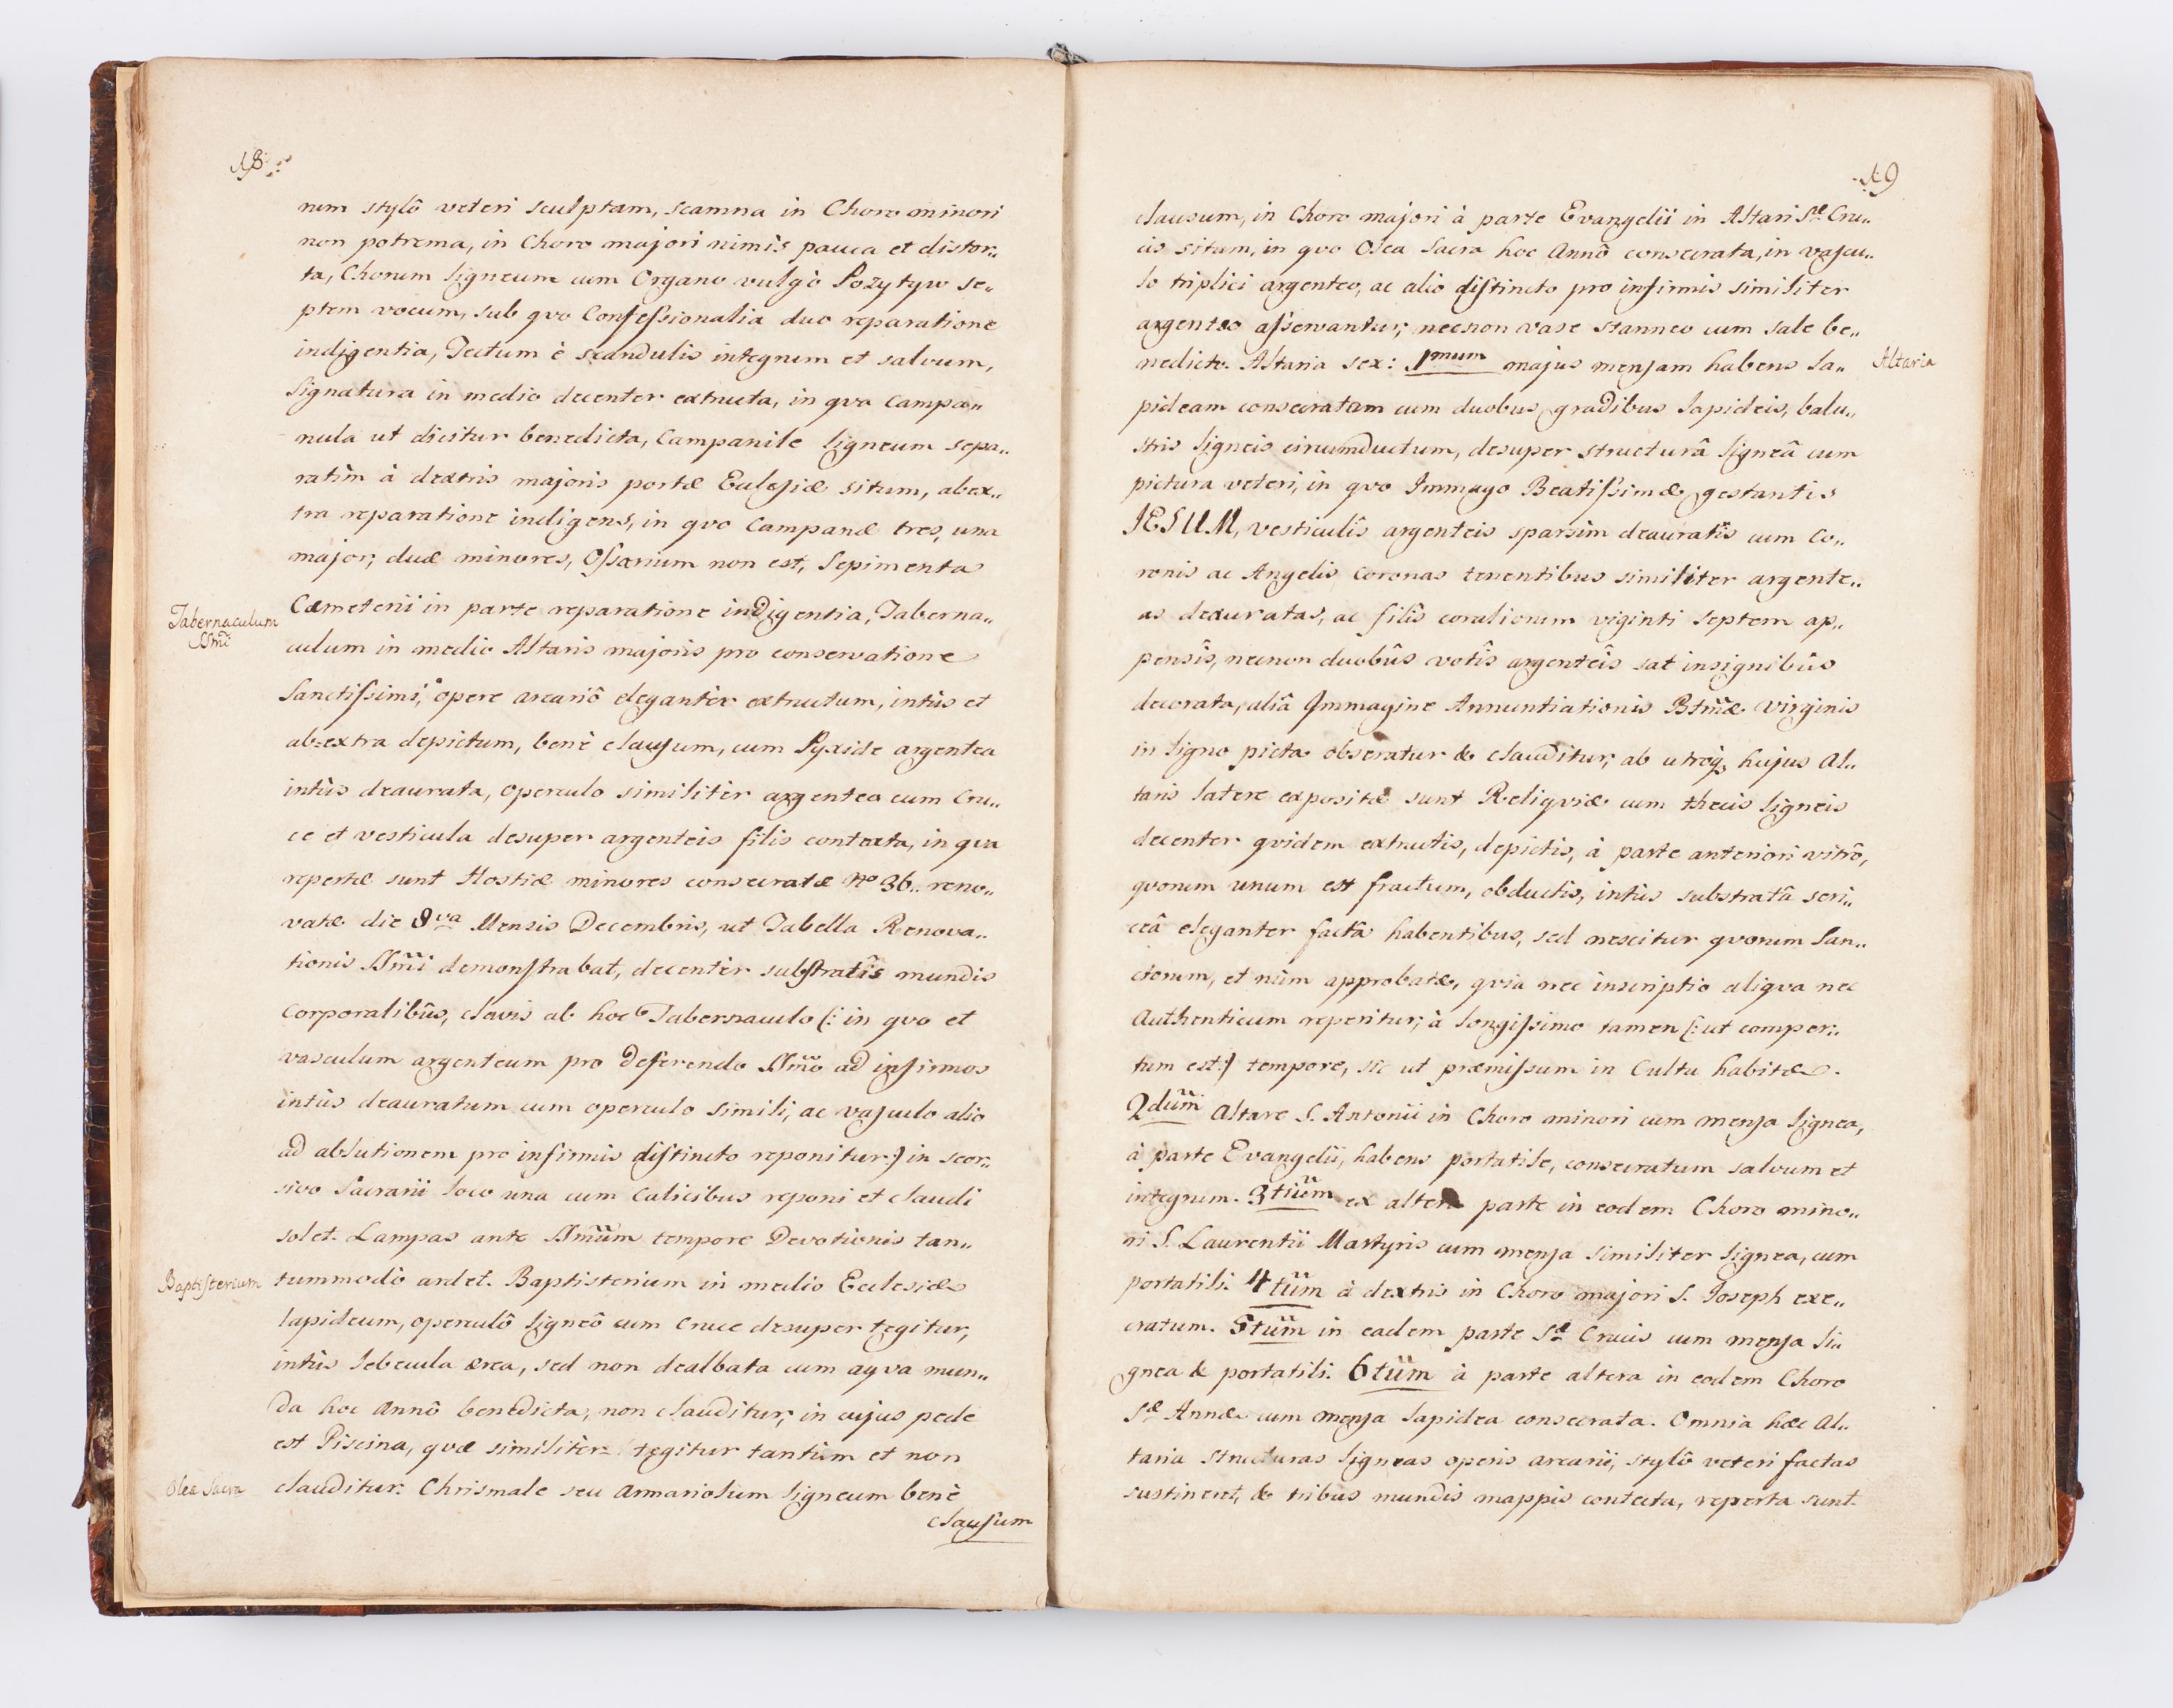 18
nem stylô veteri sculptam, scamna in Choro minori
non potrema, in Choro majori nimis pauca et distor„
ta, Chorum ligneum cum Organo vulgò Pozytyw se„
ptem vocum, sub qvo Confeſsionalia duo reparatione
indigentia, Tectum è scandulis integrum et salvum,
Signatura in medio decenter extructa, in qva Campa„
nula ut dicitur benedicta, Campanile ligneum sepa„
ratìm à dextris majoris portæ Ecclesiæ situm, abex„
tra reparatione indigens, in qvo Campanæ tres, una
major, duæ minores, Oſsarium non est, Sepimenta
Cæmeterii in parte reparatione indigentia, Taberna„
Tabernaculum
SSmi
culum in medio Altaris majoris pro conservatione
Sanctiſsimi, opere arcariô eleganter extructum, intùs et
ab=extra depictum, benè clausum, cum Pyxide argentea
intùs deaurata, operculo similiter argenteo cum Cru„
ce et vesticula desuper argenteis filis contexta, in qva
repertæ sunt Hostiæ minores consecratæ No 36. reno„
vatæ die 8va Mensis Decembris, ut Tabella Renova„
tionis SSm̃i demonſtrabat, decentèr subſtratîs mundis
Corporalibûs, clavis ab hoc Tabernaculo (: in qvo et
vasculum argenteum pro deferendo SSm̃o ad infirmos
intùs deauratum cum operculo simili, ac vaſculo alio
ad ablutionem pro infirmis diſtincto reponitur:) in seor„
sivo Sacrarii loco una cum Calicibus reponi et claudi
solet. Lampas ante SSm̃um tempore Devotionis tan„
Baptiſterium
tummodò ardet. Baptisterium in medio Ecclesiæ
lapideum, operculô ligneô cum Cruce desuper tegitur,
intùs lebecula ærea, sed non dealbata cum aqva mun„
da hoc Annô benedicta, non clauditur, in cujus pede
est Piscina, qvæ similitèr tegitur tantùm et non
Olea Sacra
clauditur. Chrismale seu Armariolum ligneum benè
clauſum
19
clausum, in Choro majori à parte Evangelii in Altari Sæ Cru„
cis situm, in qvo Olea Sacra hoc Annô consecrata, in vaſcu„
lo triplici argenteo, ac alio diſtincto pro infirmis similiter
argenteo aſservantur, necnon vase stanneo cum sale be„
nedicto. Altaria sex: 1mum majus menſam habens la„
Altaria
pideam consecratam cum duobus gradibus lapideis, balu„
stris ligneis circumductum, desuper structurâ ligneâ cum
pictura veteri, in qvo Immago Beatiſsimæ gestantis
JESUM, vesticulîs argenteis sparsìm deauratîs cum Co„
ronis ac Angelis Coronas tenentibus similiter argente„
as deauratas, ac filîs coraliorum viginti septem ap„
pensîs, necnon duobûs votîs argenteîs sat insignibûs
decorata, aliâ Immagine Annuntiationis Btmæ Virginis
in ligno picta obseratur & clauditur, ab utroq; hujus Al„
taris latere expositæ sunt Reliqviæ cum thecis ligneis
decenter qvidem extructis, depictis, à parte anteriori vitrô,
qvorum unum est fractum, obductis, intùs substratâ seri„
ceâ eleganter factâ habentibus, sed nescitur qvorum San„
ctorum, et nùm approbatæ, qvia nec inscriptio aliqva nec
Authenticum reperitur, à longiſsimo tamen (: ut comper„
tum est:) tempore, sic ut præmiſsum in Cultu habitæ.
2dum Altare S. Antonii in Choro minori cum menſa lignea,
à parte Evangelii, habens portatile, consecratum salvum et
integrum. 3tium ex altera parte in eodem Choro mino„
ri S. Laurentii Martyris cum menſa similiter lignea, cum
portatili. 4tum à dextris in Choro majori S. Joseph exe„
cratum. 5tum in eadem parte Sæ Crucis cum menſa li„
gnea & portatili. 6tum à parte altera in eodem Choro
Sæ Annæ cum menſa lapidea consecrata. Omnia hæc Al„
taria structuras ligneas operis arcarii, stylô veteri factas
sustinent, & tribus mundis mappis contecta, reperta sunt.